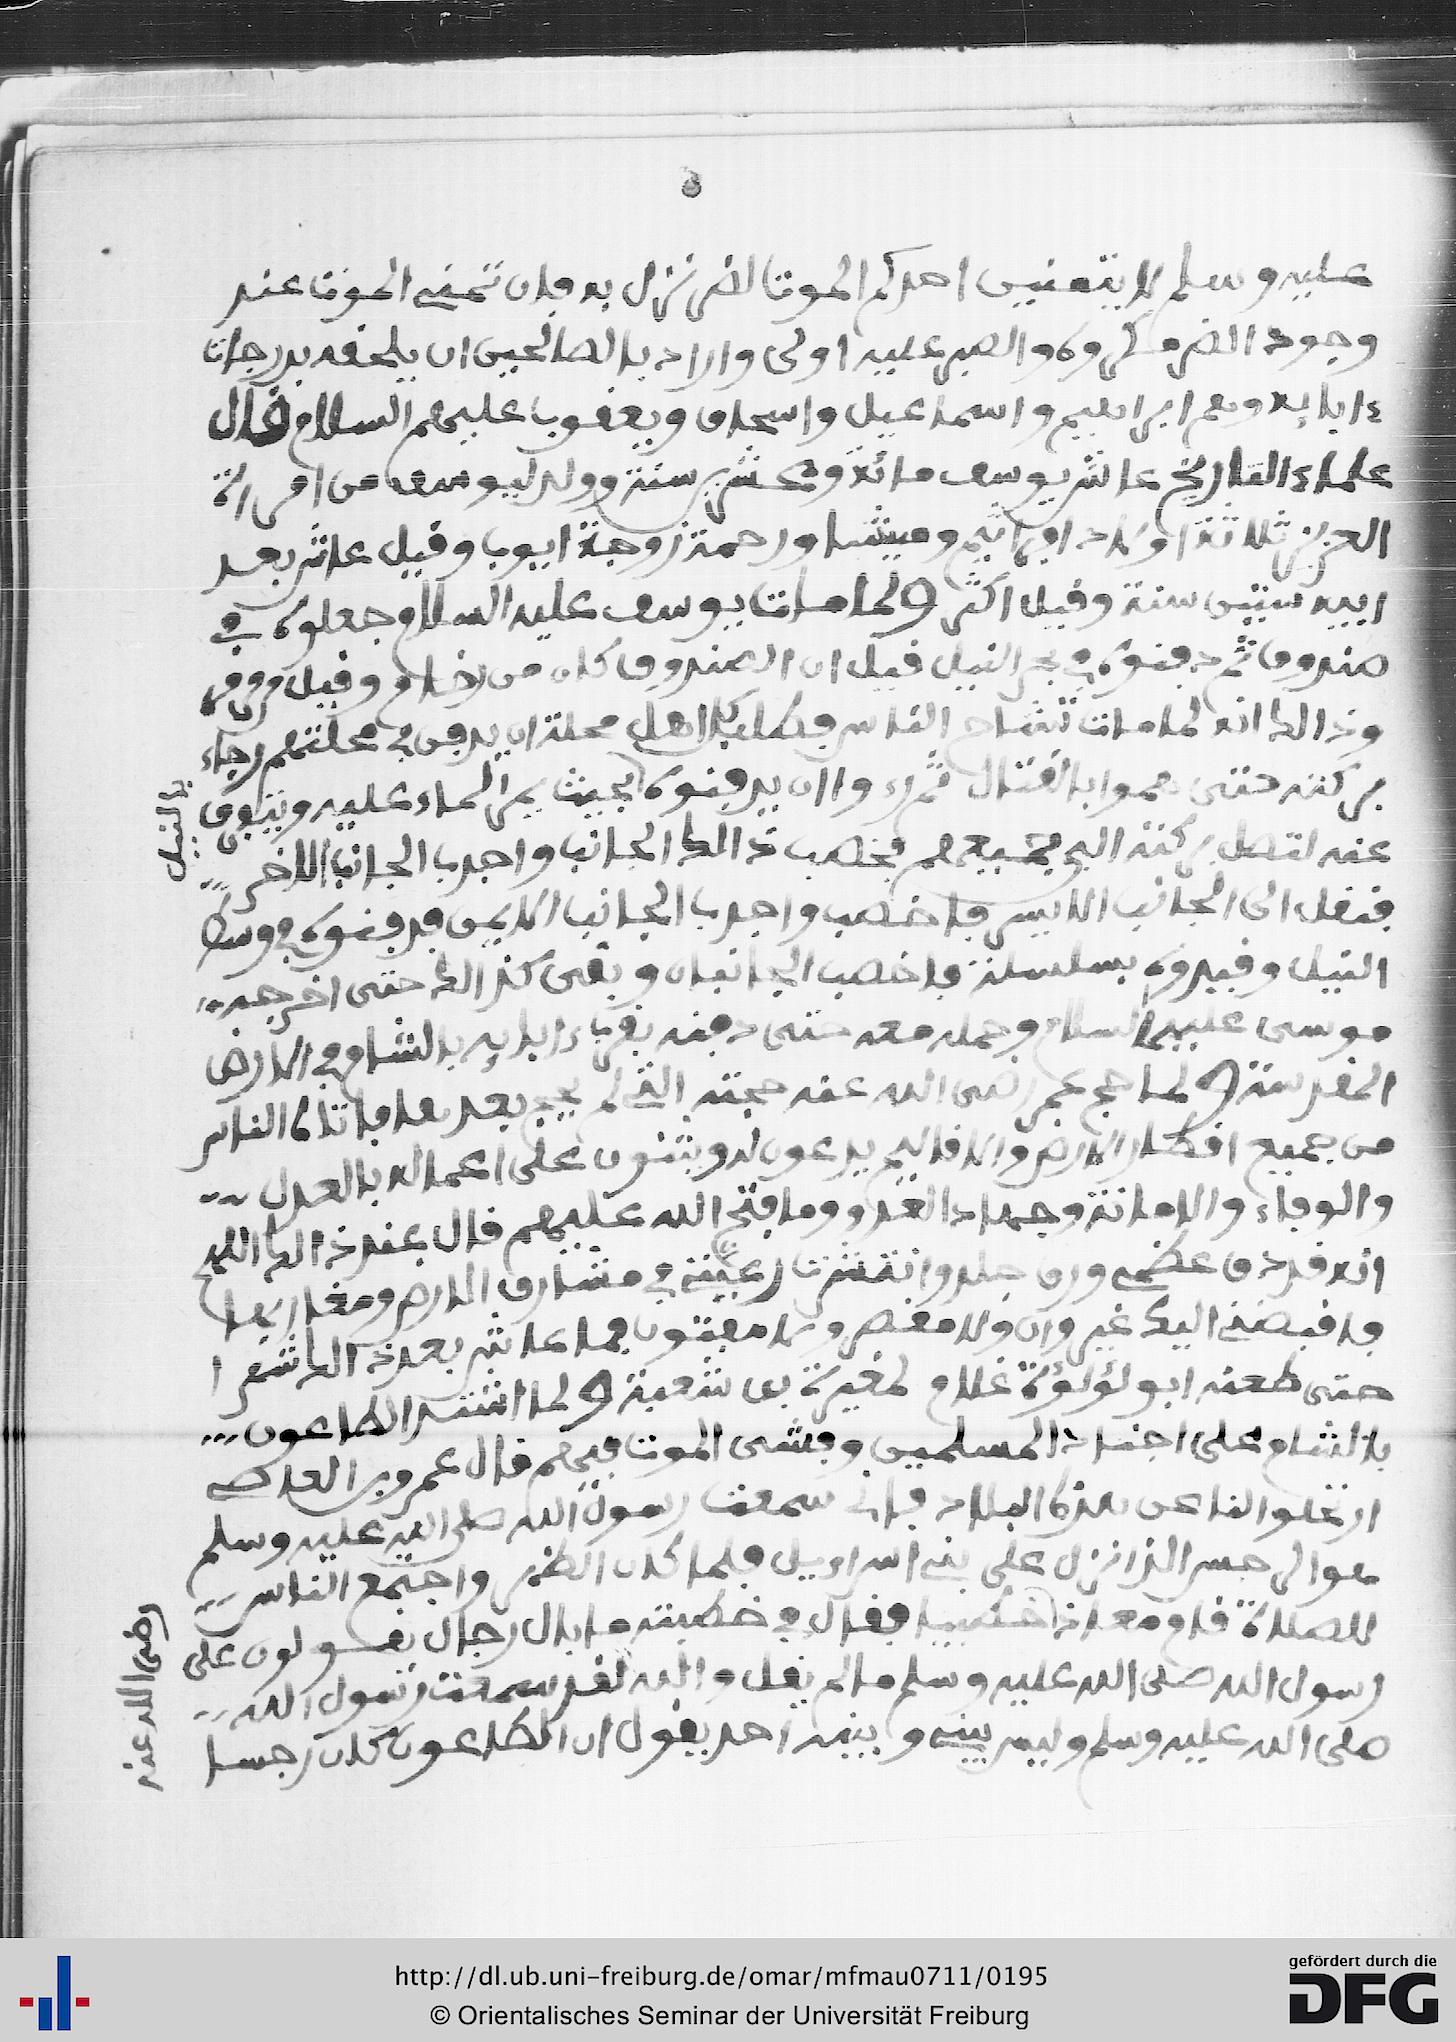 عليه وسلم لا يتمنين احدكم الموت لضر نزل به فان تمني الموت عند
وجود الضر مكروه والصبر عليه اولى واراد بالصالحين ان يلحقه بدرجات
ءابايه وهم ابراهيم واسماعيل واسحاق ويعقوب عليهم السلام قال
علماء التاريخ عاش يوسف مائة وعشرين سنة وولد ليوسف من امرراة
العزيز ثلاثة اولاد افراثيم وميشا ورحمة زوجة ايوب وقيل عاش بعد
ابيه ستين سنة وقيل اكثر ولما مات يوسف عليه السلام جعلوه في
صندوق ثم دفنوه في بحر النيل قيل ان الصندوق كان من رخام وقيل مرمر
وذالك انه لما مات تشاح الناس فطلب كل اهل محلة ان يدفن في محلتهم رجاء
بركته حتى هموا بالقتال ثم رءوا ان يدفنوه بحيث يمر الماء عليه ويتفرق
بالنيل
عنه لتصل بركته الى جميعهم فخصب ذالك الجانب واجدب الجانب الاخر
فنقل الى الجانب الايسر فاخصب واجدب الجانب الايمن فدفنوه في وسط
النيل وقيدوه بسلسلة فاخصب الجانبان وبقى كذالك حتى اخرجه
موسى عليه السلام وحمله معه حتى دفنه بقرب ءابايه بالشام في الارض
المقدسة ولما حج عمر رضى الله عنه حجته التي لم يحج بعدها فاتاه الناس
من جميع اقطار الارض والاقاليم يدعون له ويثنون على اعماله بالعدل
والوفاء والامانة وجهاد العدو وما فتح الله عليهم قال عند ذالك اللهم
انه قد دق عظمي ورق جلد وانتشرت رعيته في مشارق الارض ومغاربها
فاقبضني اليك غير وان ولا مقصر ولا مفتون فما عاش بعد ذالك شهرا
حتى طعنه ابو لؤلؤة غلام لمغيرة بن شعبة ولما اشتد الطاعون
بالشام على اجناد المسلمين وفشى الموت فيهم قال عمرو بن العاص
ارتحلوا الناعن هذه البلاد فاني سمعت رسول الله صلى الله عليه وسلم
هوالرجس الذانزل على بني اسراءيل فلما كان الظهر واجتمع الناس
للصلاة قام معاذ خطيبا فقال في خطبته ما بال رجال يقولون على
رسول الله صلى الله عليه وسلم ما لم يقل والله لقد سمعت رسول الله
رضى الله عنه
صلى الله عليه وسلم وليس بيني وبينه احد يقول ان الطاعون كان رجسا
http://dl.ub.uni-freiburg.de/omar/mfmau0711/0195
© Orientalisches Seminar der Universität Freiburg
gefördert durch die
DFG